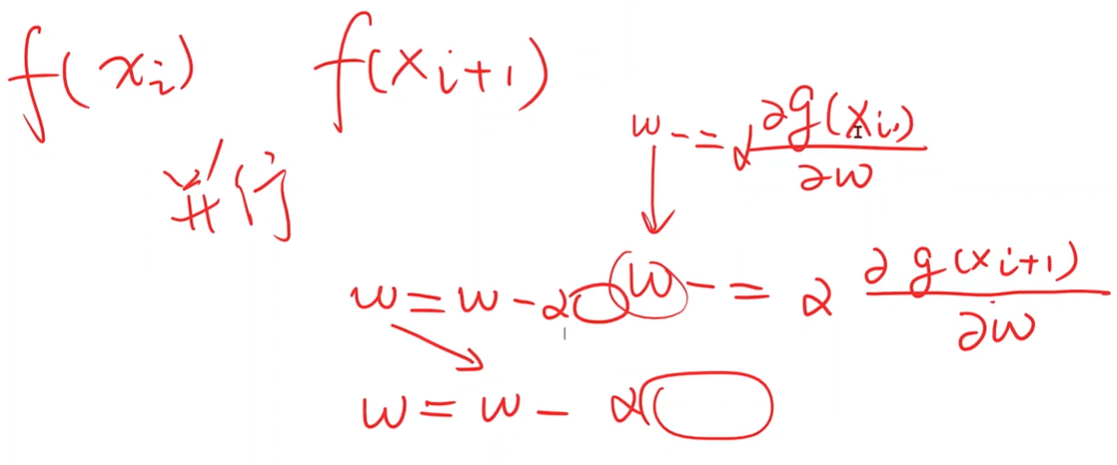 f(xᵢ) f(xᵢ₊₁)
w -= α ∂g(xᵢ)/∂w
并行
w = w - α w -= α ∂g(xᵢ₊₁)/∂w
w = w - α